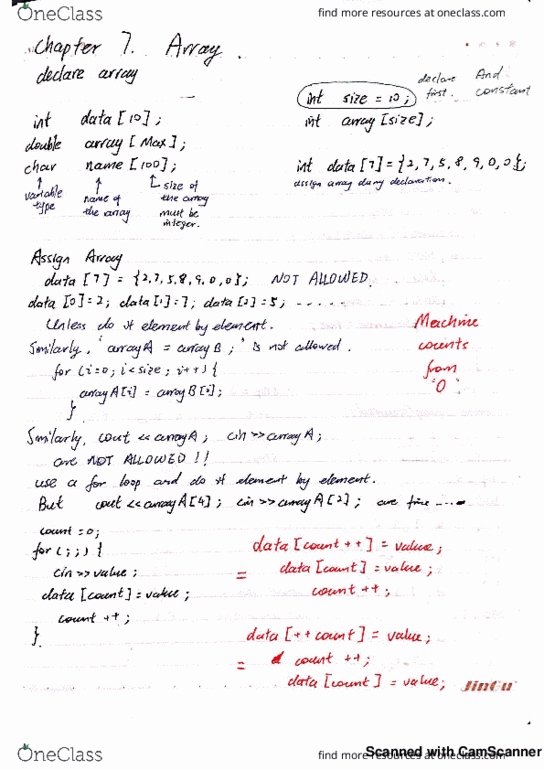 OneClass
find more resources at oneclass.com
Chapter 7. Array.
declare array
int size = 10;
declare first.
And constant
int data [10];
int array [size];
double array [Max];
char name [100];
int data [7] = {2,7,5,8,9,0,0};
assign array during declaration.
variable type
name of the array
size of the array must be integer.
Assign Array
data [7] = {2,7,5,8,9,0,0}; NOT ALLOWED
data [0]=2; data[1]=7; data [2]=5; .....
Unless do it element by element.
Machine counts from "0".
Similarly, 'arrayA = arrayB;' is not allowed.
for (i=0; i<size; i++) {
arrayA[i] = arrayB[i];
}
Similarly, cout << arrayA; cin >> arrayA;
are NOT ALLOWED!!
use a for loop and do it element by element.
But cout << arrayA[4]; cin >> arrayA[2]; are fine ....
count = 0;
for (;;) {
cin >> value;
data [count] = value;
count ++;
}
data [count ++] = value;
= data [count] = value;
count ++;
data [++ count] = value;
= count ++;
data [count] = value;
JinGu
OneClass
find more resources at oneclass.com
Scanned with CamScanner